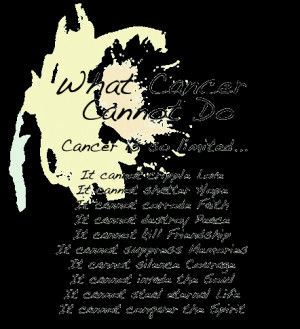 What Cancer
Cannot Do
Cancer is so limited...
It cannot cripple Love
It cannot shatter Hope
It cannot corrode Faith
It cannot destroy Peace
It cannot kill Friendship
It cannot suppress Memories
It cannot silence Courage
It cannot invade the Soul
It cannot steal eternal Life
It cannot conquer the Spirit